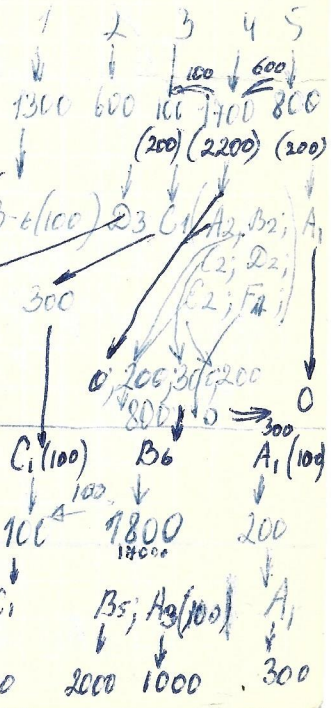 1 2 3 4 5
100 600
1300 600 100 1700 800
(200) (2200) (200)
6(100) D3 C1 (A2, B2; A1
C2; D2;
300 E2; F2;)
0; 200; 300 200 0
800; 0 300
C1(100) B6 A1(100)
100 100 1800 200
17000
B5; A3(100) A1
2000 1000 300